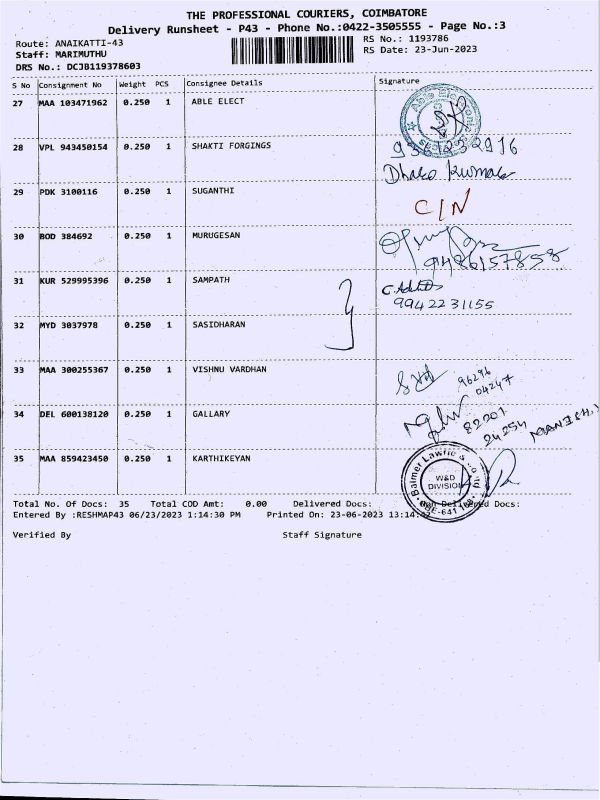 THE PROFESSIONAL COURIERS, COIMBATORE
Delivery Runsheet - P43 - Phone No.:0422-3505555 - Page No.:3
Route: ANAIKATTI-43
RS No.: 1193786
Staff: MARIMUTHU
RS Date: 23-Jun-2023
DRS No.: DCJB119378603
S No Consignment No Weight PCS Consignee Details Signature
27 MAA 103471962 0.250 1 ABLE ELECT
28 VPL 943450154 0.250 1 SHAKTI FORGINGS
29 PDK 3100116 0.250 1 SUGANTHI
C/N
30 BOD 384692 0.250 1 MURUGESAN
9486157858
31 KUR 529995396 0.250 1 SAMPATH
9942231155
32 MYD 3037978 0.250 1 SASIDHARAN
33 MAA 300255367 0.250 1 VISHNU VARDHAN
96296
04247
34 DEL 600138120 0.250 1 GALLARY
82201
24254
35 MAA 859423450 0.250 1 KARTHIKEYAN
Balmer Lawrie & Co Ltd
W&D
DIVISION
Total No. Of Docs: 35 Total COD Amt: 0.00 Delivered Docs: Non Delivered Docs:
Entered By :RESHMAP43 06/23/2023 1:14:30 PM Printed On: 23-06-2023 13:14:42
Verified By Staff Signature